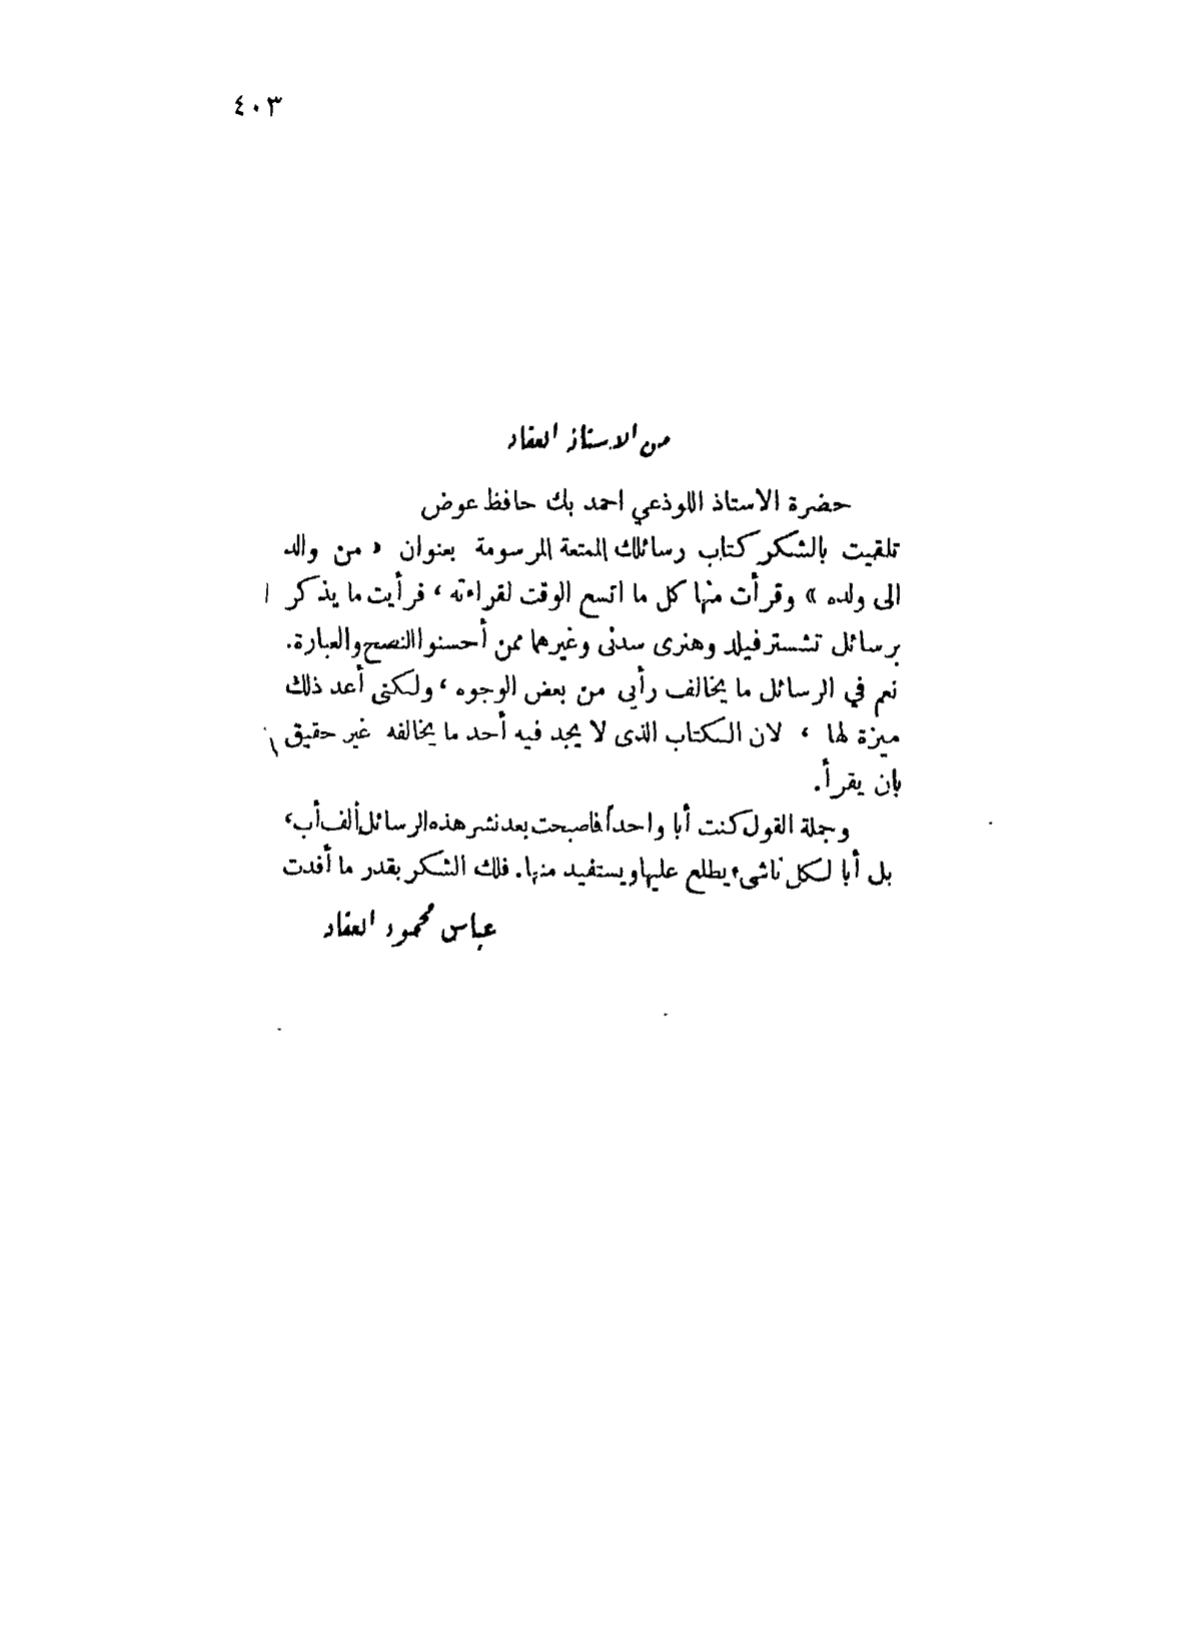 ٤٠٣
من الاستاذ العقاد
حضرة الاستاذ اللوذعي احمد بك حافظ عوض
تلقيت بالشكر كتاب رسائلك الممتعة المرسومة بعنوان « من والد
الى ولده » وقرأت منها كل ما اتسع الوقت لقراءته ، فرأيت ما يذكر
برسائل تشسترفيلد وهنرى سدنى وغيرهما ممن أحسنوا النصح والعبارة.
نعم في الرسائل ما يخالف رأيى من بعض الوجوه ، ولكنى أعد ذلك
ميزة لها ، لان الكتاب الذى لا يجد فيه أحد ما يخالفه غير حقيق
بان يقرأ.
وجملة القول كنت أبا واحداً فاصبحت بعد نشر هذه الرسائل ألف أب ،
بل أبا لكل ناشىء يطلع عليها ويستفيد منها. فلك الشكر بقدر ما أفدت
عباس محمود العقاد